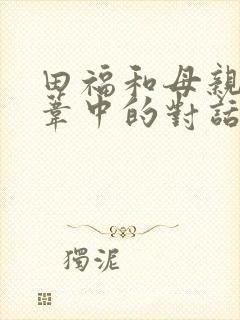 田福和母親
葦中的對話
獨泥